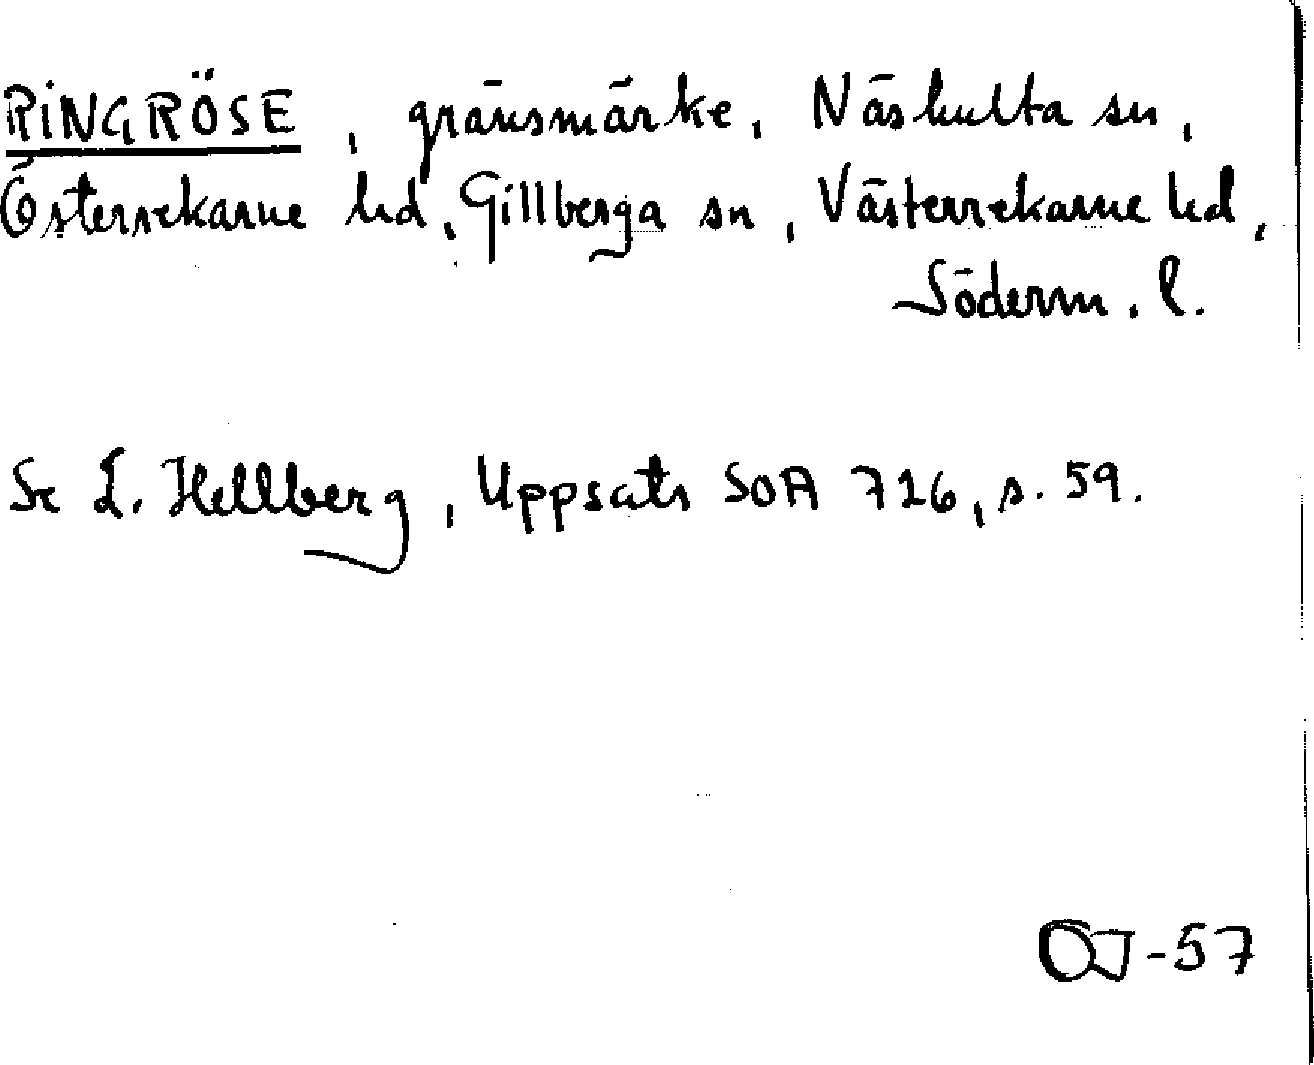 RINGRÖSE, gränsmärke, Näshulta sn,
Österrekarne hd, Gillberga sn, Västerrekarne hd,
Söderm. l.
Se L. Hellberg, Uppsats SOA 716, s. 59.
OJ-57